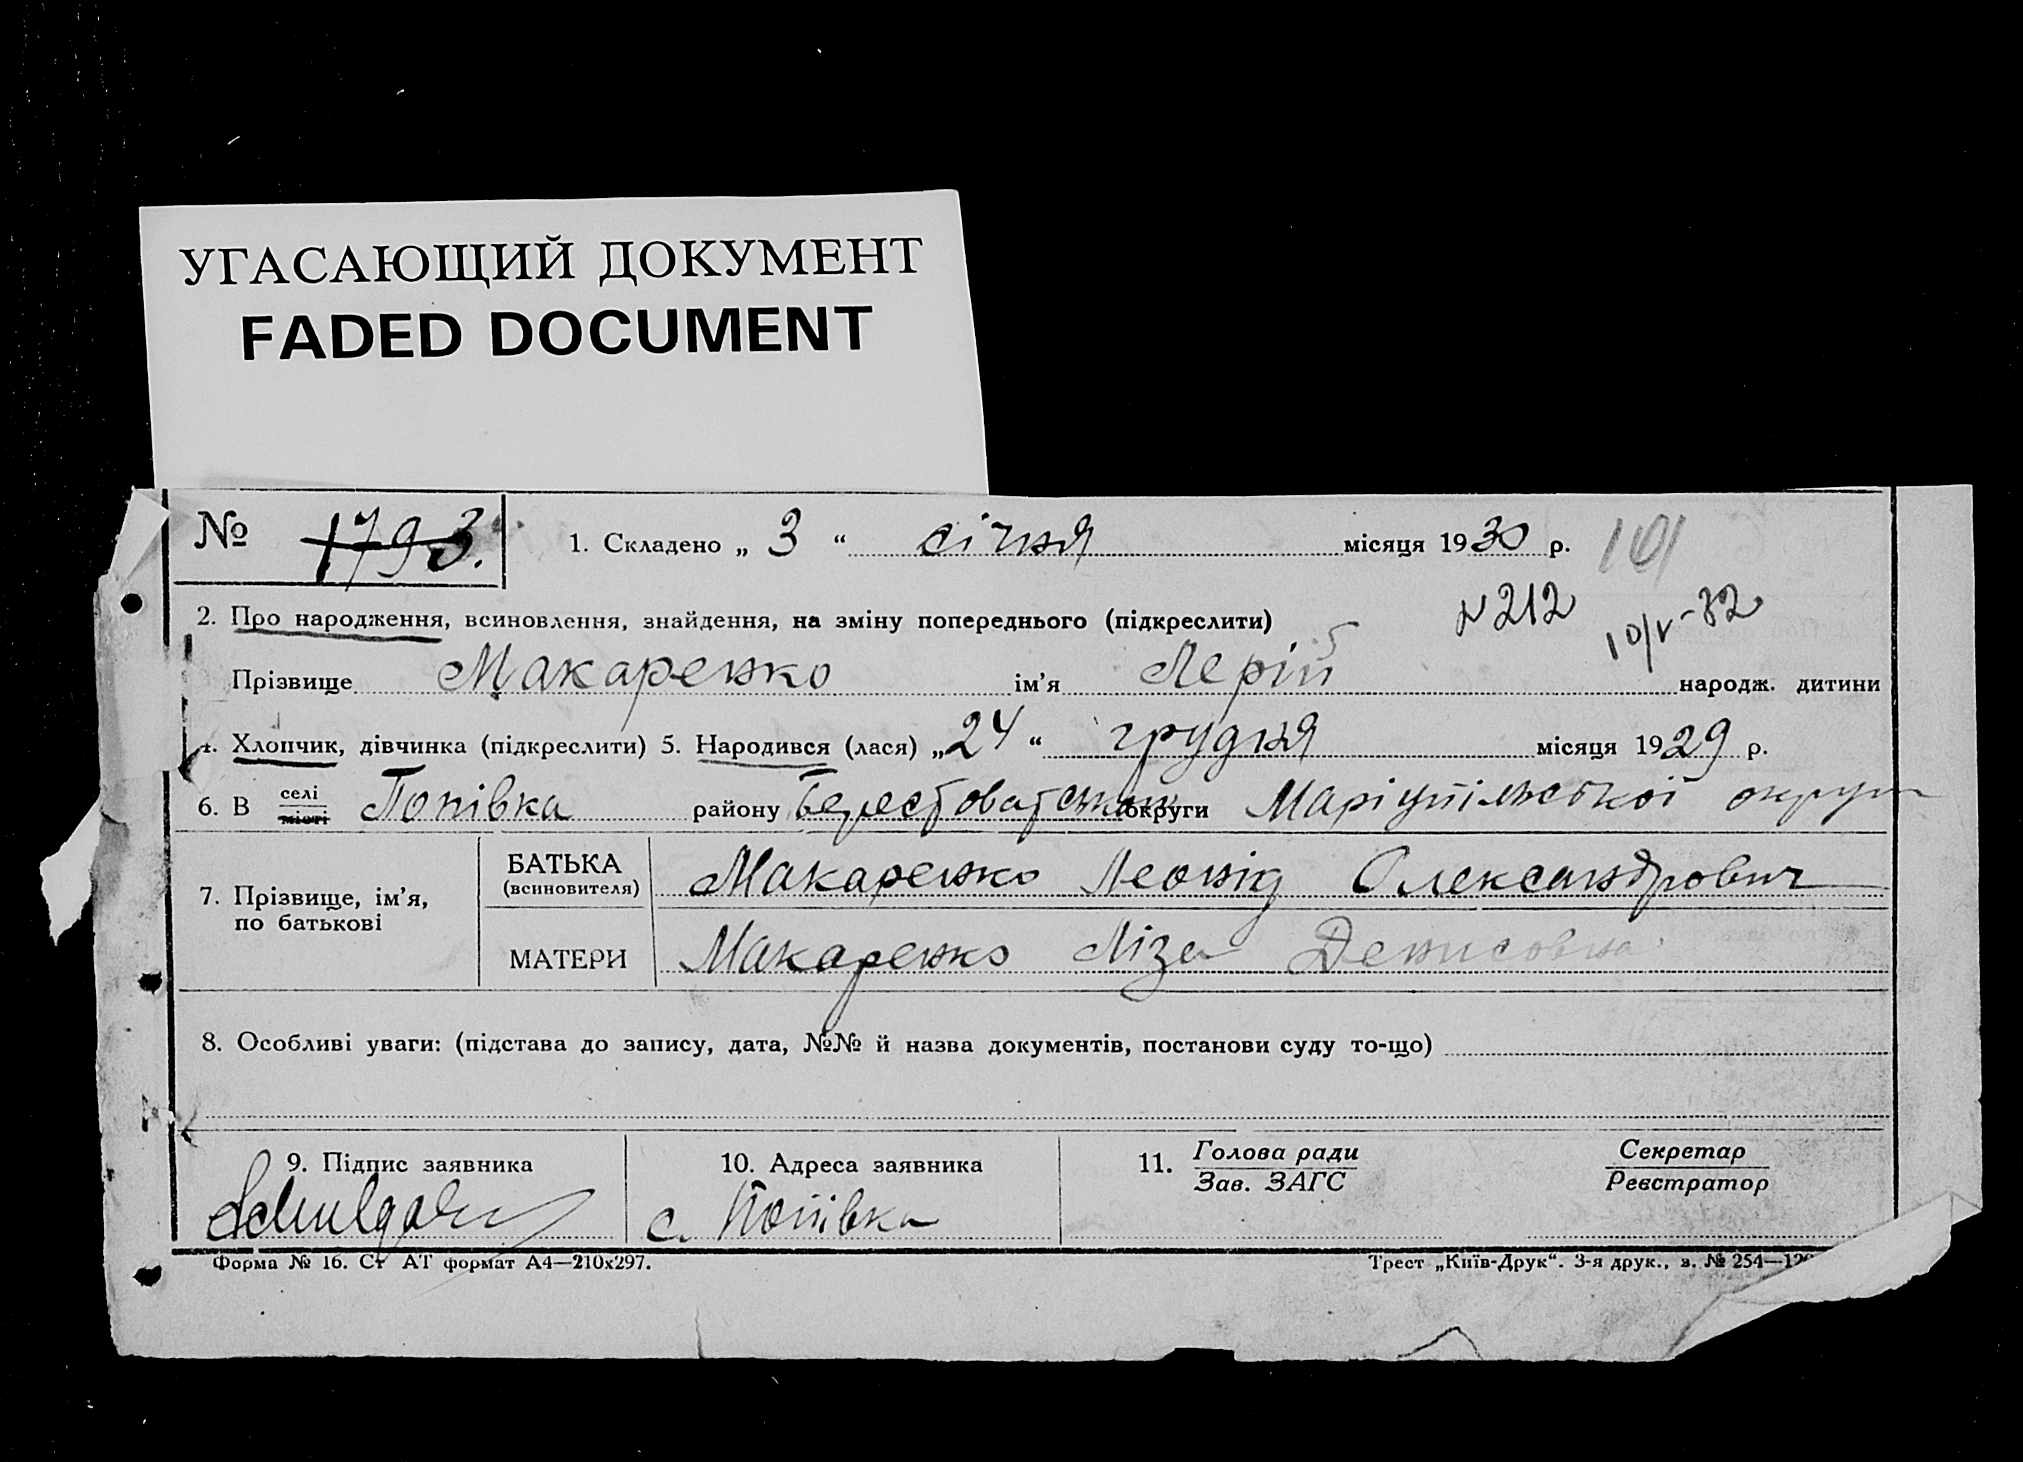 УГАСАЮЩИЙ ДОКУМЕНТ
FADED DOCUMENT
№ 1793.
1. Складено „ 3 “ січня місяця 1930 р. 101
2. Про народження, всиновлення, знайдення, на зміну попереднього (підкреслити) N 212 10/V-32
Прізвище Макаренко ім’я Лерій народж. дитини
4. Хлопчик, дівчинка (підкреслити) 5. Народився (лася) „24“ грудня місяця 1929 р.
6. В селі Попівка району округи Маріупільської округи
місті
7. Прізвище, ім’я, по батькові
БАТЬКА (всиновителя) Макаренко Леонід Олександрович
МАТЕРИ Макаренко Ліза Денисовна
8. Особливі уваги: (підстава до запису, дата, №№ й назва документів, постанови суду то-що)
9. Підпис заявника
10. Адреса заявника
с. Попівка
11. Голова ради
Зав. ЗАГС
Секретар
Реєстратор
Форма № 16. Ст АТ формат А4—210х297.
Трест „Київ-Друк“. 3-я друк., з. № 254—